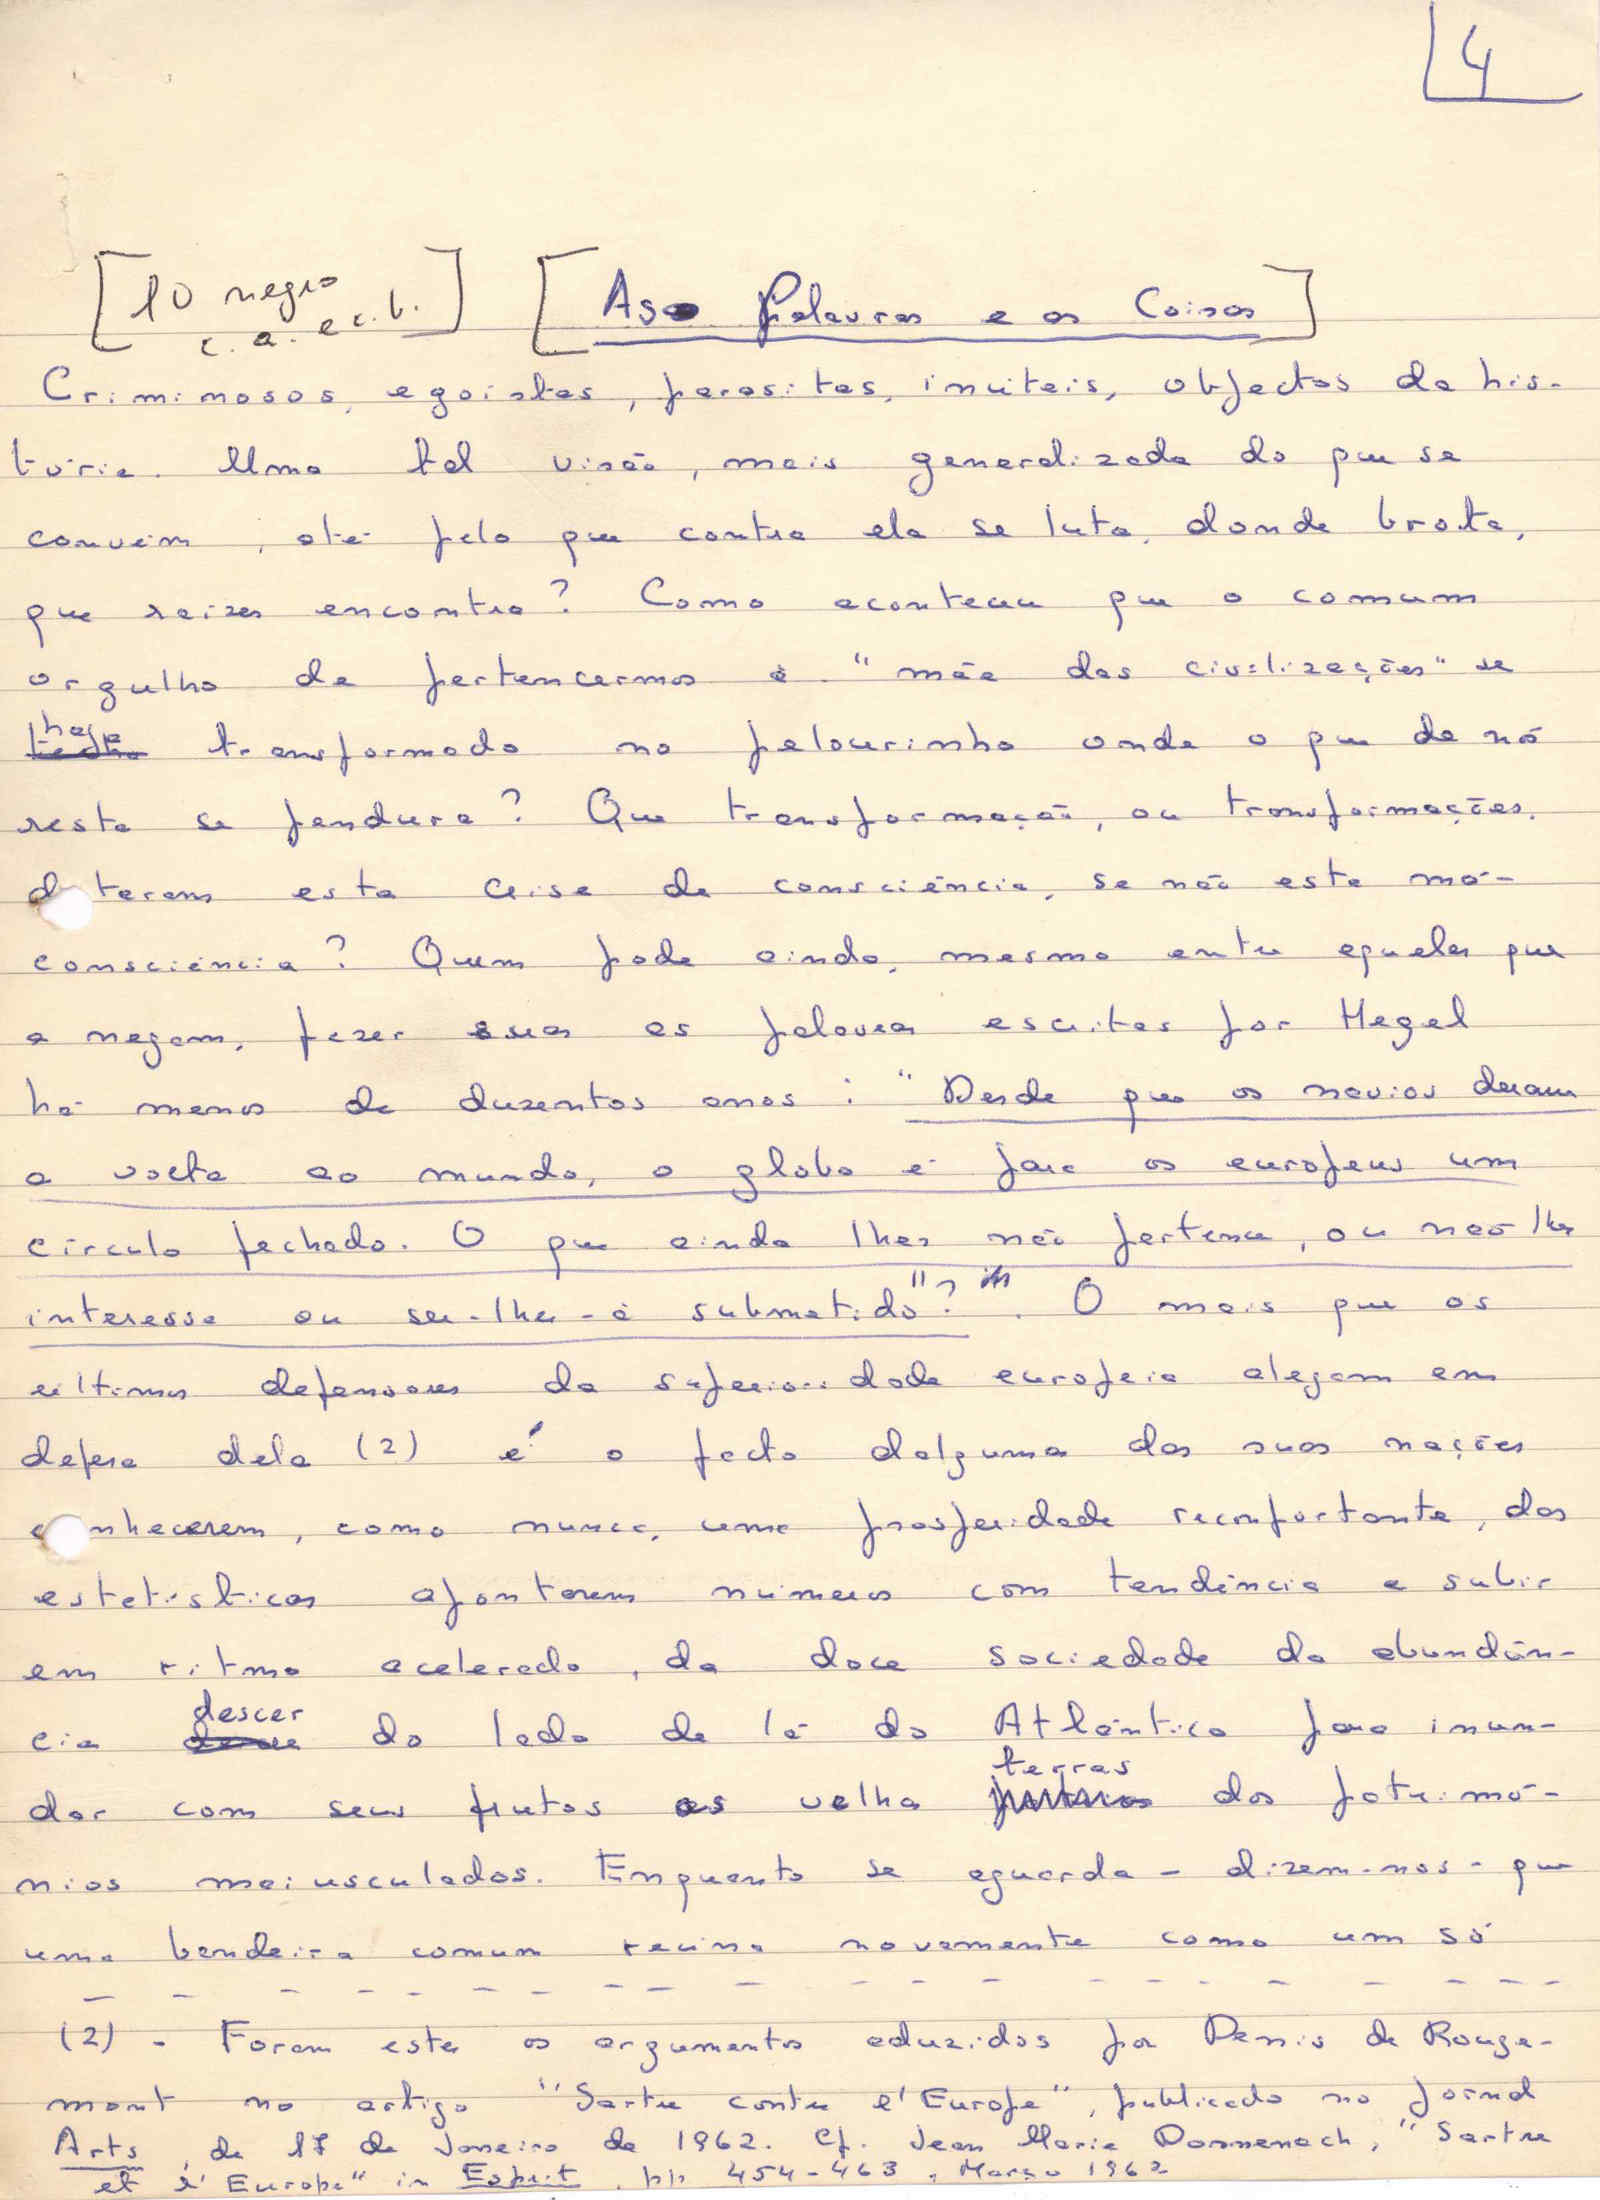 4
[10 negro [As Palavras e as Coisas]
c. a. e c. b.]
Criminosos, egoistas, parasitas, inúteis, objectos da his-
tória. Uma tal visão, mais generalizada do que se
convém, até pelo que contra ela se luta, donde brota,
que raizes encontra? Como aconteceu que o comum
orgulho de pertencermos à "mãe das civilizações" se
haja transformado no pelourinho onde o que de nós
resta se pendura? Que transformação, ou transformações,
d terem esta crise de consciência, se não esta má-
consciência? Quem pode ainda, mesmo entre aqueles que
a negam, fazer suas as palavras escritas por Hegel
há menos de duzentos anos: "Desde que os navios deram
a volta ao mundo, o globo é para os europeus um
círculo fechado. O que ainda lhes não pertence, ou não lhes
interessa ou ser-lhes-á submetido"? O mais que os
últimos defensores da superioridade europeia alegam em
defesa dela (2) é o facto dalgumas das suas nações
conhecerem, como nunca, uma prosperidade reconfortante, das
estatísticas apontarem números com tendência a subir
em ritmo acelerado, da doce sociedade da abundân-
cia descer do lado de lá do Atlântico para inun-
dar com seus frutos as velha terras dos patrimó-
nios maiusculados. Enquanto se aguarda - dizem-nos - que
uma bandeira comum reúna novamente como um só
(2) - Foram estes os argumentos aduzidos por Denis de Rouge-
mont no artigo "Sartre contre l'Europe", publicado no jornal
Arts, de 17 de Janeiro de 1962. Cf. Jean Marie Domenach, "Sartre
et l'Europe" in Esprit, pp. 454-463, Março 1962